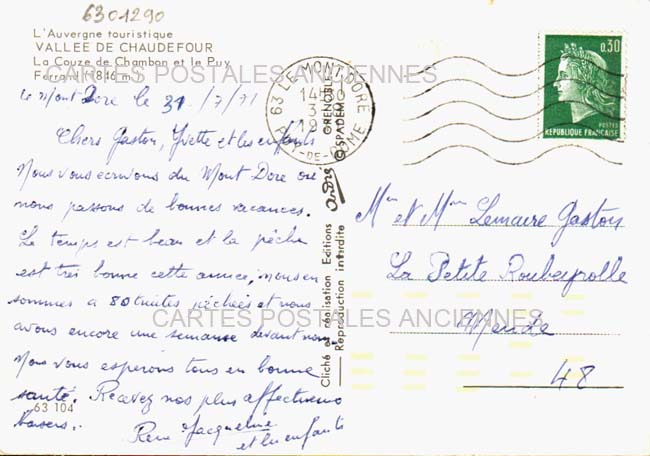 6301290
L'Auvergne touristique
VALLEE DE CHAUDEFOUR
La Couze de Chambon et le Puy
Ferrand (1846 m)
CARTES POSTALES ANCIENNES
Le Mont Dore le 31/7/71
Chers Gaston, Yvette et les enfants
Nous vous écrivons du Mont Dore où
nous passons de bonnes vacances.
Le temps est beau et la pêche
est très bonne cette année, nous en
sommes à 80 truites pêchées et nous
avons encore une semaine devant nous
Nous vous espérons tous en bonne
santé. Recevez nos plus affectueux
baisers.
René Jacqueline
et les enfants
63 104
63 LE MONT DORE
PUY-DE-DOME
Cliché et réalisation Editions
Reproduction interdite
André
GRENOBLE
SPADEM
0,30
POSTES
REPUBLIQUE FRANÇAISE
Mr et Mme Lemaire Gaston
La Petite Roubeyrolle
Mende
48
CARTES POSTALES ANCIENNES